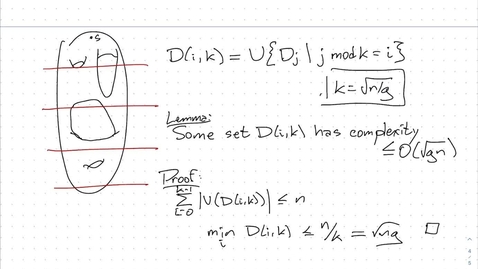 •s
D(i,k) = ∪{D_j | j mod k = i}
k = √n/g
Lemma:
Some set D(i,k) has complexity
≤ O(√gn)
Proof:
∑_{i=0}^{k-1} |V(D(i,k))| ≤ n
min_i D(i,k) ≤ n/k = √ng □